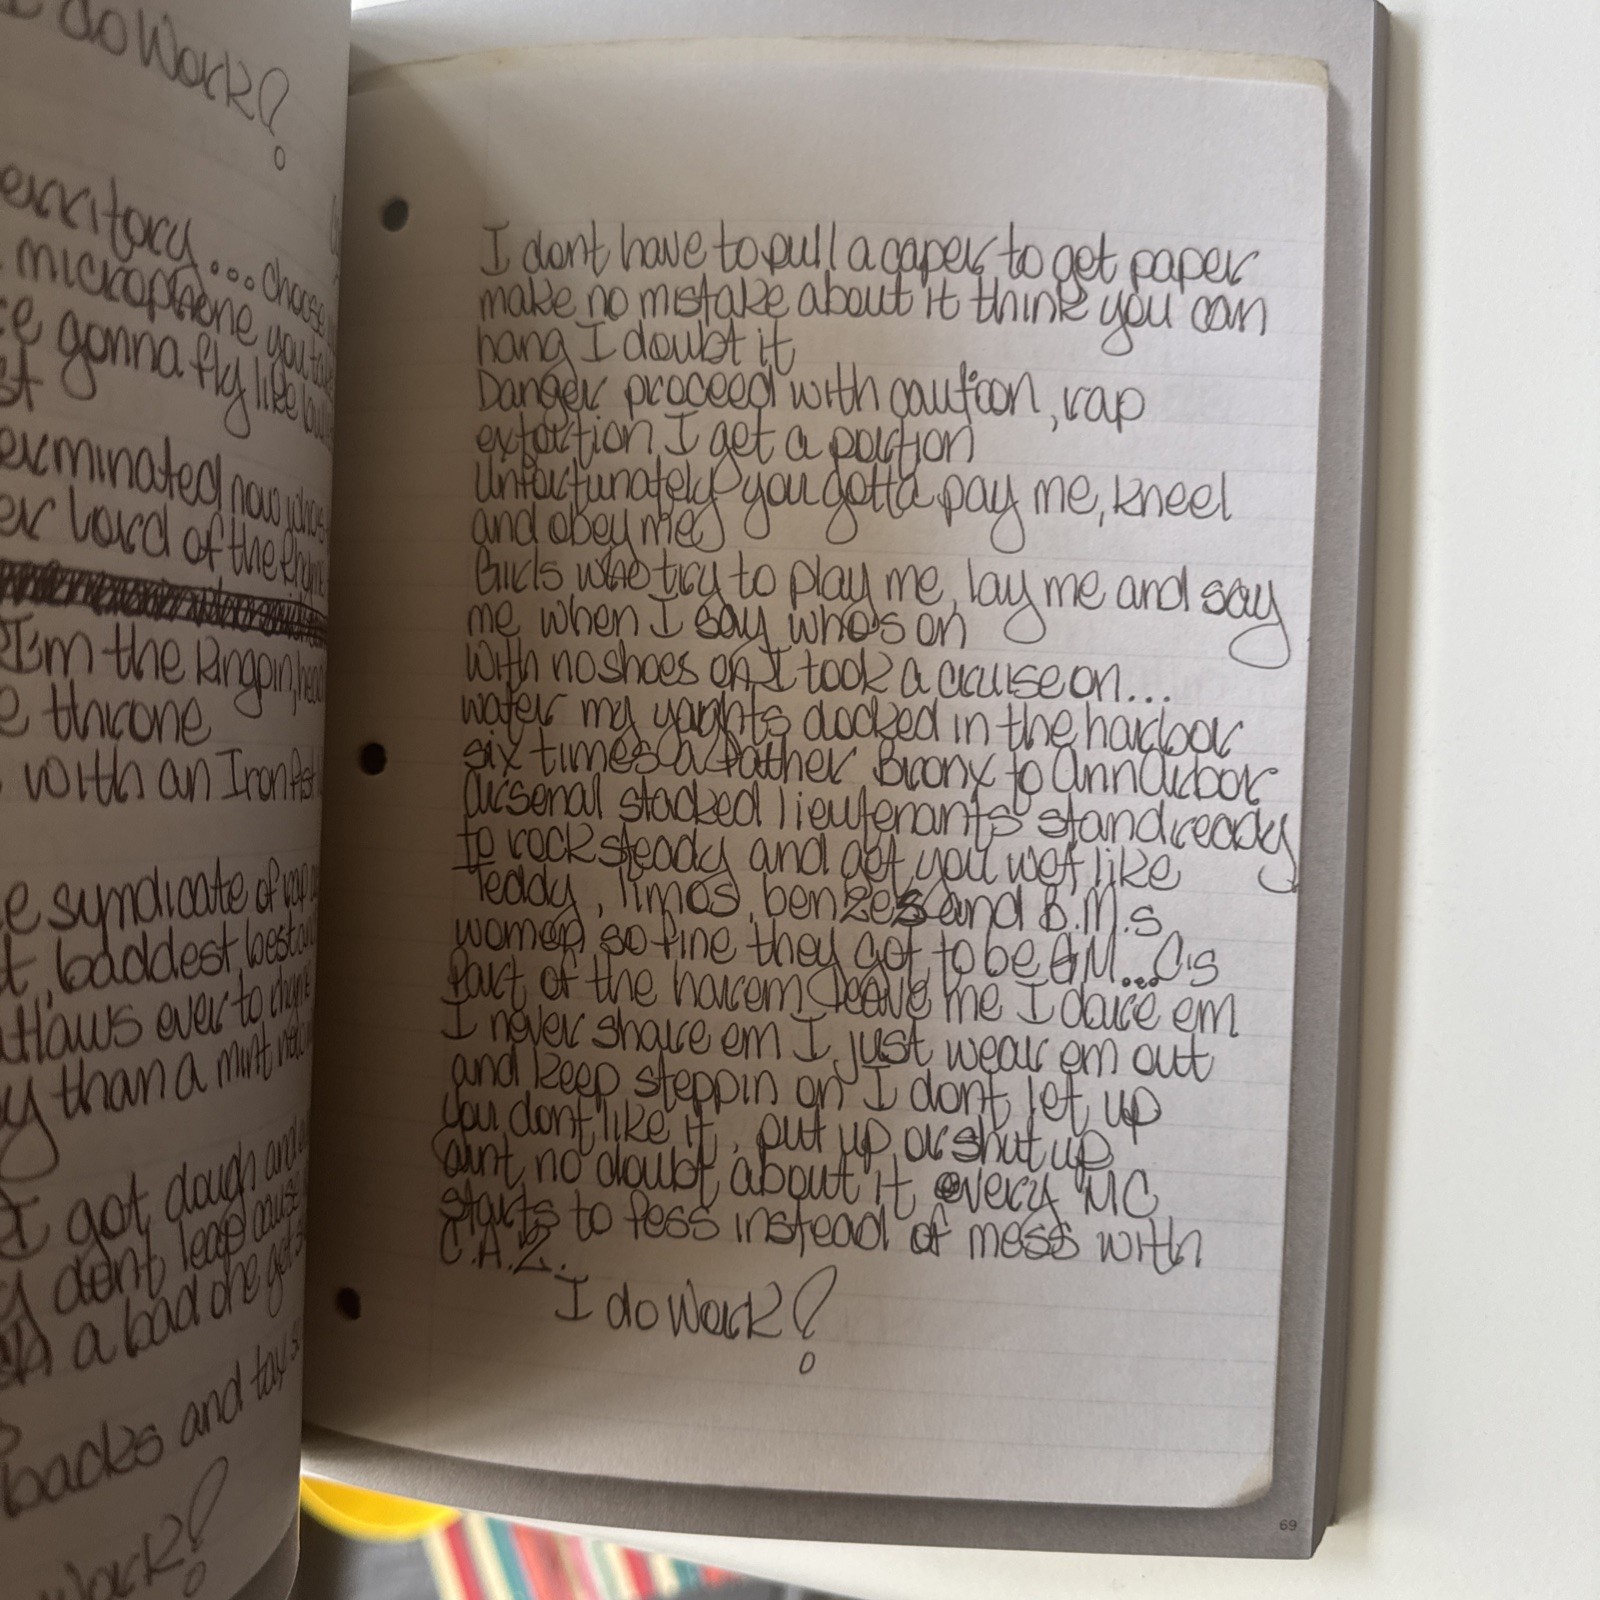 I do Work!
erritory... choose
microphone you take
ce gonna fly like
st
erminated now whos
er Lord of the Rhyme
I'm the kingpin, head
e throne
with an Iron fist
e syndicate of rap
t, baddest best
utlaws ever to rhyme
y than a mint
I got dough and
y dont leap cause
a bad one got
backs and tax
Work!
I dont have to pull a caper, to get paper
make no mistake about it think you can
hang I doubt it
Danger proceed with caution, rap
extortion I get a portion
Unfortunately you gotta pay me, kneel
and obey me
Girls who try to play me, lay me and say
me when I say who's on
With no shoes on I took a cruise on...
water my yachts docked in the harbor
six times a father Bronx to Ann Arbor
arsenal stacked lieutenants stand ready
to rock steady and get you wet like
Teddy, limos, benzes and B.M.s
women so fine they got to be G.M...C's
Part of the harem leave me I dare em
I never share em I just wear em out
and keep steppin on I dont let up
you dont like it, put up or shut up
aint no doubt about it every MC
starts to fess instead of mess with
C.A.Z.
I do Work!
69